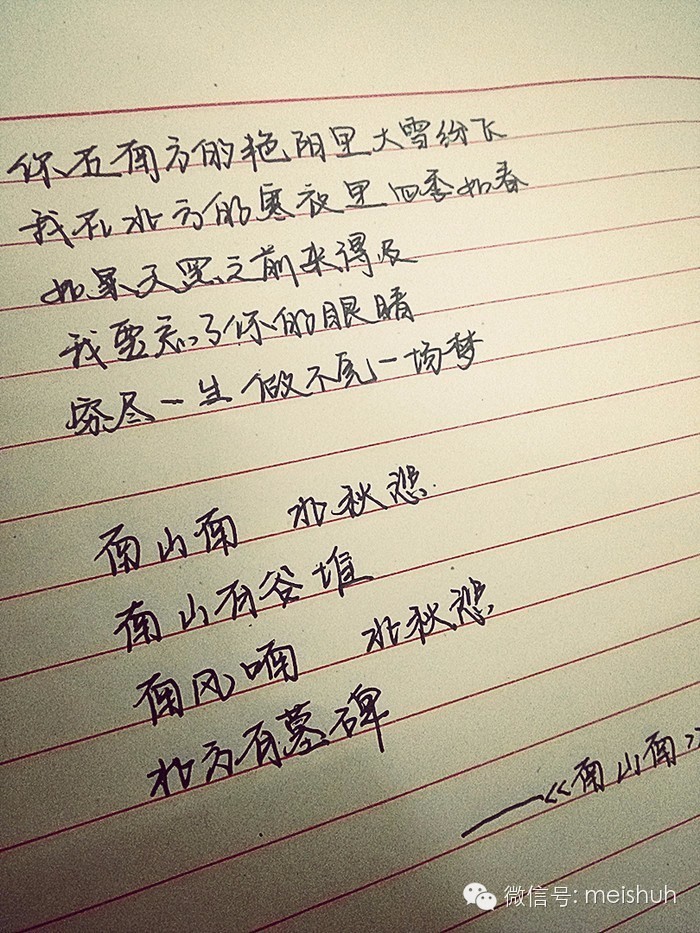 你在南方的艳阳里大雪纷飞
我在北方的寒夜里四季如春
如果天黑之前来得及
我要忘了你的眼睛
穷尽一生 做不完一场梦
南山南 北秋悲
南山有谷堆
南风喃 北秋悲
北方有墓碑
——《南山南》
微信号: meishuh